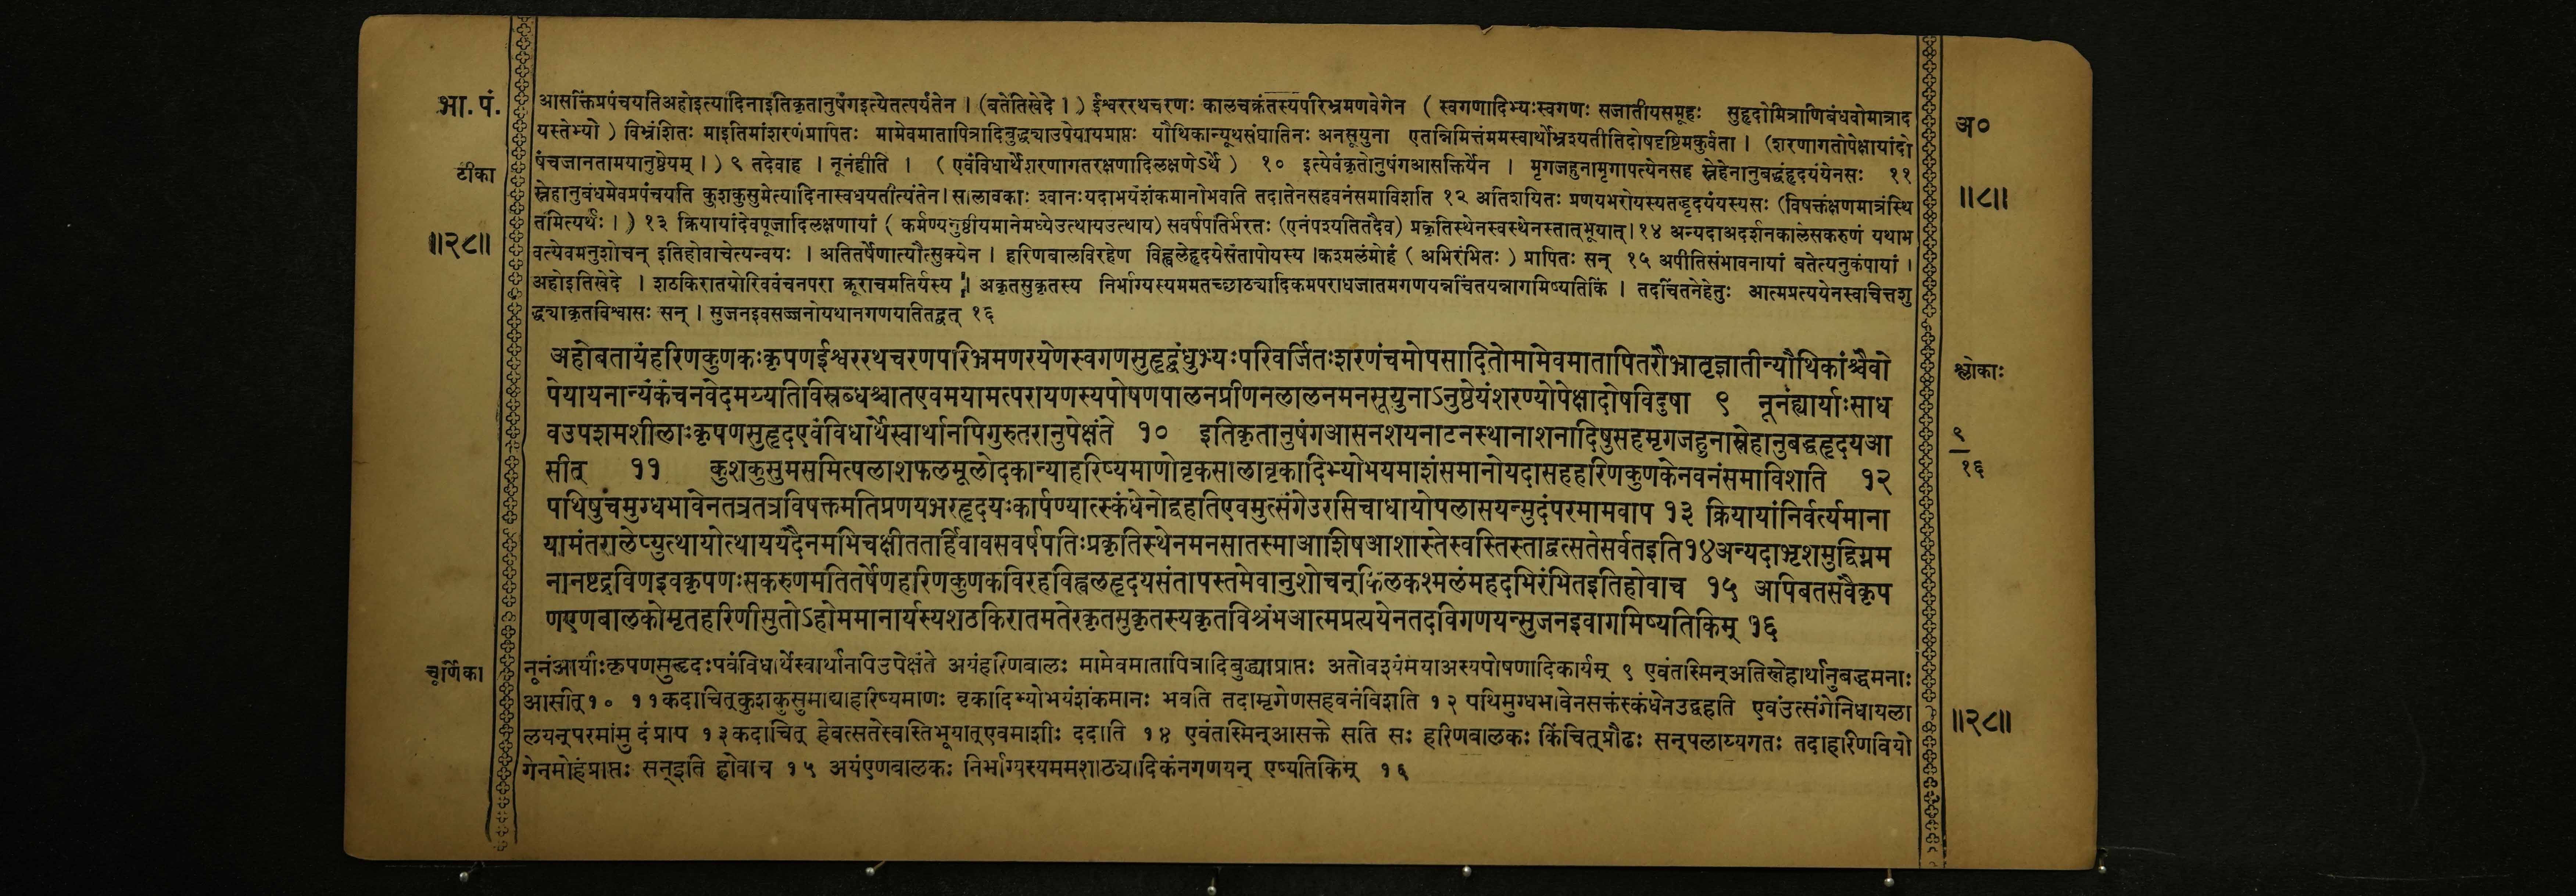 भा. पं.
टीका
॥२८॥
आसक्तिंप्रपंचयतिअहोइत्यादिनाइतिकृतानुषंगइत्येतत्पर्यंतेन । (बतेतिखेदे । ) ईश्वररथचरणः कालचक्रंतस्यपरिभ्रमणवेगेन ( स्वगणादिभ्यःस्वगणः सजातीयसमूहः सुहृदोमित्राणिबंधवोमात्राद
यस्तेभ्यो ) विभ्रंशितः माइतिमांशरणंप्रापितः मामेवमातापित्रादिबुद्ध्याउपेयायप्राप्तः यौथिकान्यूथसंघातिनः अनसूयुना एतन्निमित्तंममस्वार्थोभ्रश्यतीतिदोषदृष्टिमकुर्वता । (शरणागतोपेक्षायांदो
षंचजानतामयानुष्ठेयम् । ) ९ तदेवाह । नूनंहीति । ( एवंविधार्थेशरणागतरक्षणादिलक्षणेऽर्थे ) १० इत्येवंकृतोनुषंगआसक्तिर्येन । मृगजहुनामृगापत्येनसह स्नेहेनानुबद्धंहृदयंयेनसः ११
स्नेहानुबंधमेवप्रपंचयति कुशकुसुमेत्यादिनास्वधयतीत्यंतेन। सालावकाः श्वानःयदाभयंशंकमानोभवति तदातेनसहवनंसमाविशति १२ अतिशयितः प्रणयभरोयस्यतद्धृदयंयस्यसः (विषक्तंक्षणमात्रंस्थि
तमित्यर्थः । ) १३ क्रियायांदेवपूजादिलक्षणायां ( कर्मण्यनुष्ठीयमानेमध्येउत्थायउत्थाय) सवर्षपतिर्भरतः (एनंपश्यतितदैव) प्रकृतिस्थेनस्वस्थेनस्तात्भूयात्। १४ अन्यदाअदर्शनकालेसकरुणं यथाभ
वत्येवमनुशोचन् इतिहोवाचेत्यन्वयः । अतितर्षेणात्यौत्सुक्येन । हरिणबालविरहेण विह्वलेहृदयेसंतापोयस्य ।कश्मलंमोहं ( अभिरंभितः ) प्रापितः सन् १५ अपीतिसंभावनायां बतेत्यनुकंपायां ।
अहोइतिखेदे । शठकिरातयोरिववंचनपरा क्रूराचमतिर्यस्य । अकृतसुकृतस्य निर्भाग्यस्यममतच्छाठ्यादिकमपराधजातमगणयन्नचिंतयन्नागमिष्यतिकिं । तदचिंतनेहेतुः आत्मप्रत्ययेनस्वचित्तशु
द्ध्याकृतविश्वासः सन् । सुजनइवसज्जनोयथानगणयतितद्वत् १६
अहोबतायंहरिणकुणकःकृपणईश्वररथचरणपरिभ्रमणरयेणस्वगणसुहृद्बंधुभ्यःपरिवर्जितःशरणंचमोपसादितोमामेवमातापितरौभ्रातृज्ञातीन्यौथिकांश्चैवो
पेयायनान्यंकंचनवेदमय्यतिविस्रब्धश्चातएवमयामत्परायणस्यपोषणपालनप्रीणनलालनमनसूयुनाऽनुष्ठेयंशरण्योपेक्षादोषविदुषा ९ नूनंह्यार्याःसाध
वउपशमशीलाःकृपणसुहृदएवंविधार्थेस्वार्थानपिगुरुतरानुपेक्षंते १० इतिकृतानुषंगआसनशयनाटनस्थानाशनादिषुसहमृगजहुनास्नेहानुबद्धहृदयआ
सीत् ११ कुशकुसुमसमित्पलाशफलमूलोदकान्याहरिष्यमाणोवृकसालावृकादिभ्योभयमाशंसमानोयदासहहरिणकुणकेनवनंसमाविशति १२
पथिषुचमुग्धभावेनतत्रतत्रविषक्तमतिप्रणयभरहृदयःकार्पण्यात्स्कंधेनोद्वहतिएवमुत्संगेउरसिचाधायोपलासयन्मुदंपरमामवाप १३ क्रियायांनिर्वर्त्यमाना
यामंतरालेप्युत्थायोत्थाययदैनमभिचक्षीततार्हिवावसवर्षपतिःप्रकृतिस्थेनमनसातस्माआशिषआशास्तेस्वस्तिस्ताद्वत्सतेसर्वतइति१४अन्यदाभृशमुद्विग्नम
नानष्टद्रविणइवकृपणःसकरुणमतितर्षेणहरिणकुणकविरहविह्वलहृदयसंतापस्तमेवानुशोचन्किलकश्मलंमहदभिरंभितइतिहोवाच १५ अपिबतसवैकृप
णएणबालकोमृतहरिणीसुतोऽहोममानार्यस्यशठकिरातमतेरकृतसुकृतस्यकृतविश्रंभआत्मप्रत्ययेनतदविगणयन्सुजनइवागमिष्यतिकिम् १६
चूर्णिका
नूनंआर्याःकृपणसुहृदःएवंविधार्थेस्वार्थानपिउपेक्षंते अयंहरिणबालः मामेवमातापित्रादिबुद्ध्याप्राप्तः अतोवश्यंमयाअस्यपोषणादिकार्यम् ९ एवंतस्मिन्अतिस्नेहार्थानुबद्धमनाः
आसीत्१० ११कदाचित्कुशकुसुमाद्याहरिष्यमाणः वृकादिभ्योभयंशंकमानः भवति तदामृगेणसहवनंविशति १२ पथिमुग्धभावेनसक्तंस्कंधेनउद्वहति एवंउत्संगेनिधायला
लयन्परमांमुदंप्राप १३कदाचित् हेवत्सतेस्वस्तिभूयात्एवमाशीः ददाति १४ एवंतस्मिन्आसक्ते सति सः हरिणबालकः किंचित्प्रौढः सन्पलाय्यगतः तदाहरिणवियो
गेनमोहंप्राप्तः सन्इति होवाच १५ अयंएणबालकः निर्भाग्यस्यममशाठ्यादिकंनगणयन् एष्यतिकिम् १६
अ०
॥८॥
श्लोकाः
९
१६
॥२८॥